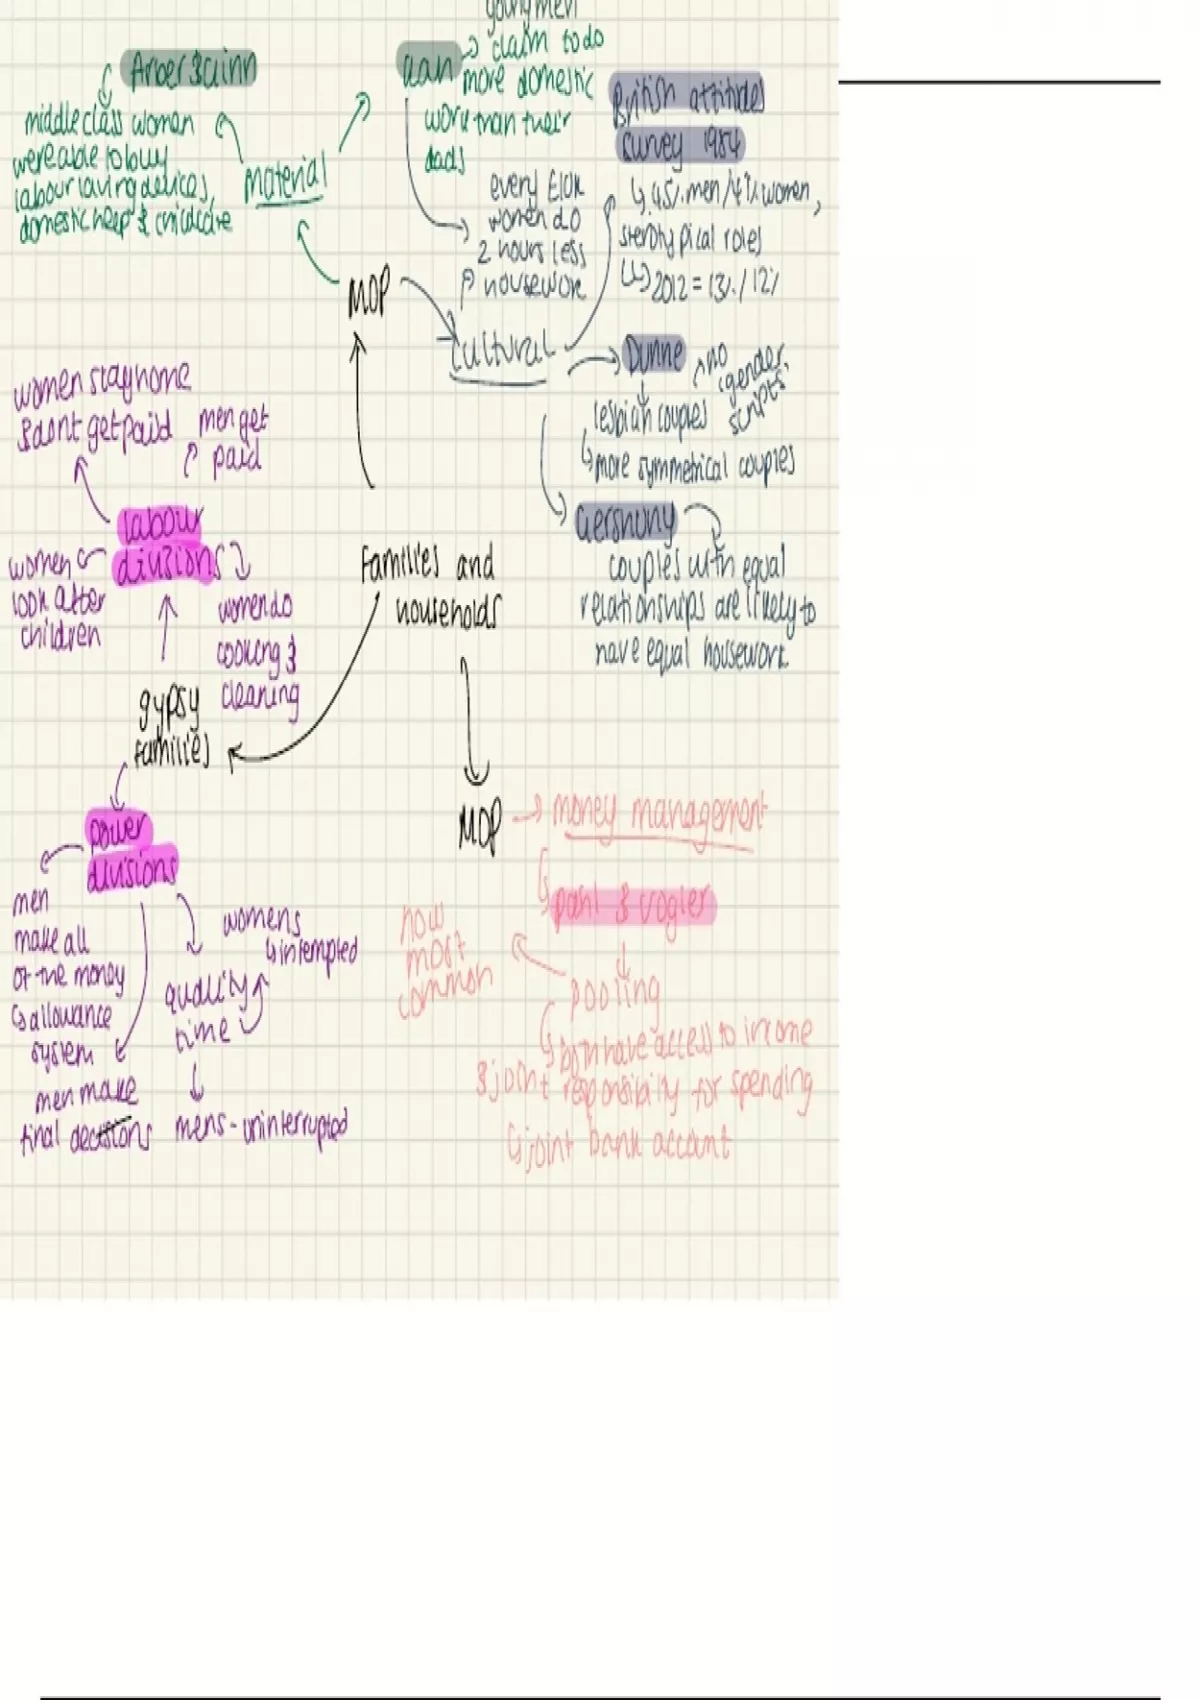 Arber & Ginn
middle class women
were able to buy
labour saving devices,
domestic help & childcare
material
young men
claim to do
more domestic
work than their
dads
Kan
every £10k
women do
2 hours less
housework
British attitudes
survey 1984
45% men / 41% women,
sterotypical roles
2012 = 13% / 12%
MOP
cultural
Dunne
no
gender
scripts
lesbian couples
more symmetrical couples
Gershuny
couples with equal
relationships are likely to
have equal housework
women stay home
& don't get paid
men get
paid
labour
divisions
women
look after
children
women do
cooking &
cleaning
families and
households
gypsy
families
power
divisions
men
make all
of the money
allowance
system
men make
final decisions
womens
interrupted
quality
time
mens - uninterrupted
MOP
money management
pahl & vogler
now
most
common
pooling
both have access to income
& joint responsibility for spending
joint bank account